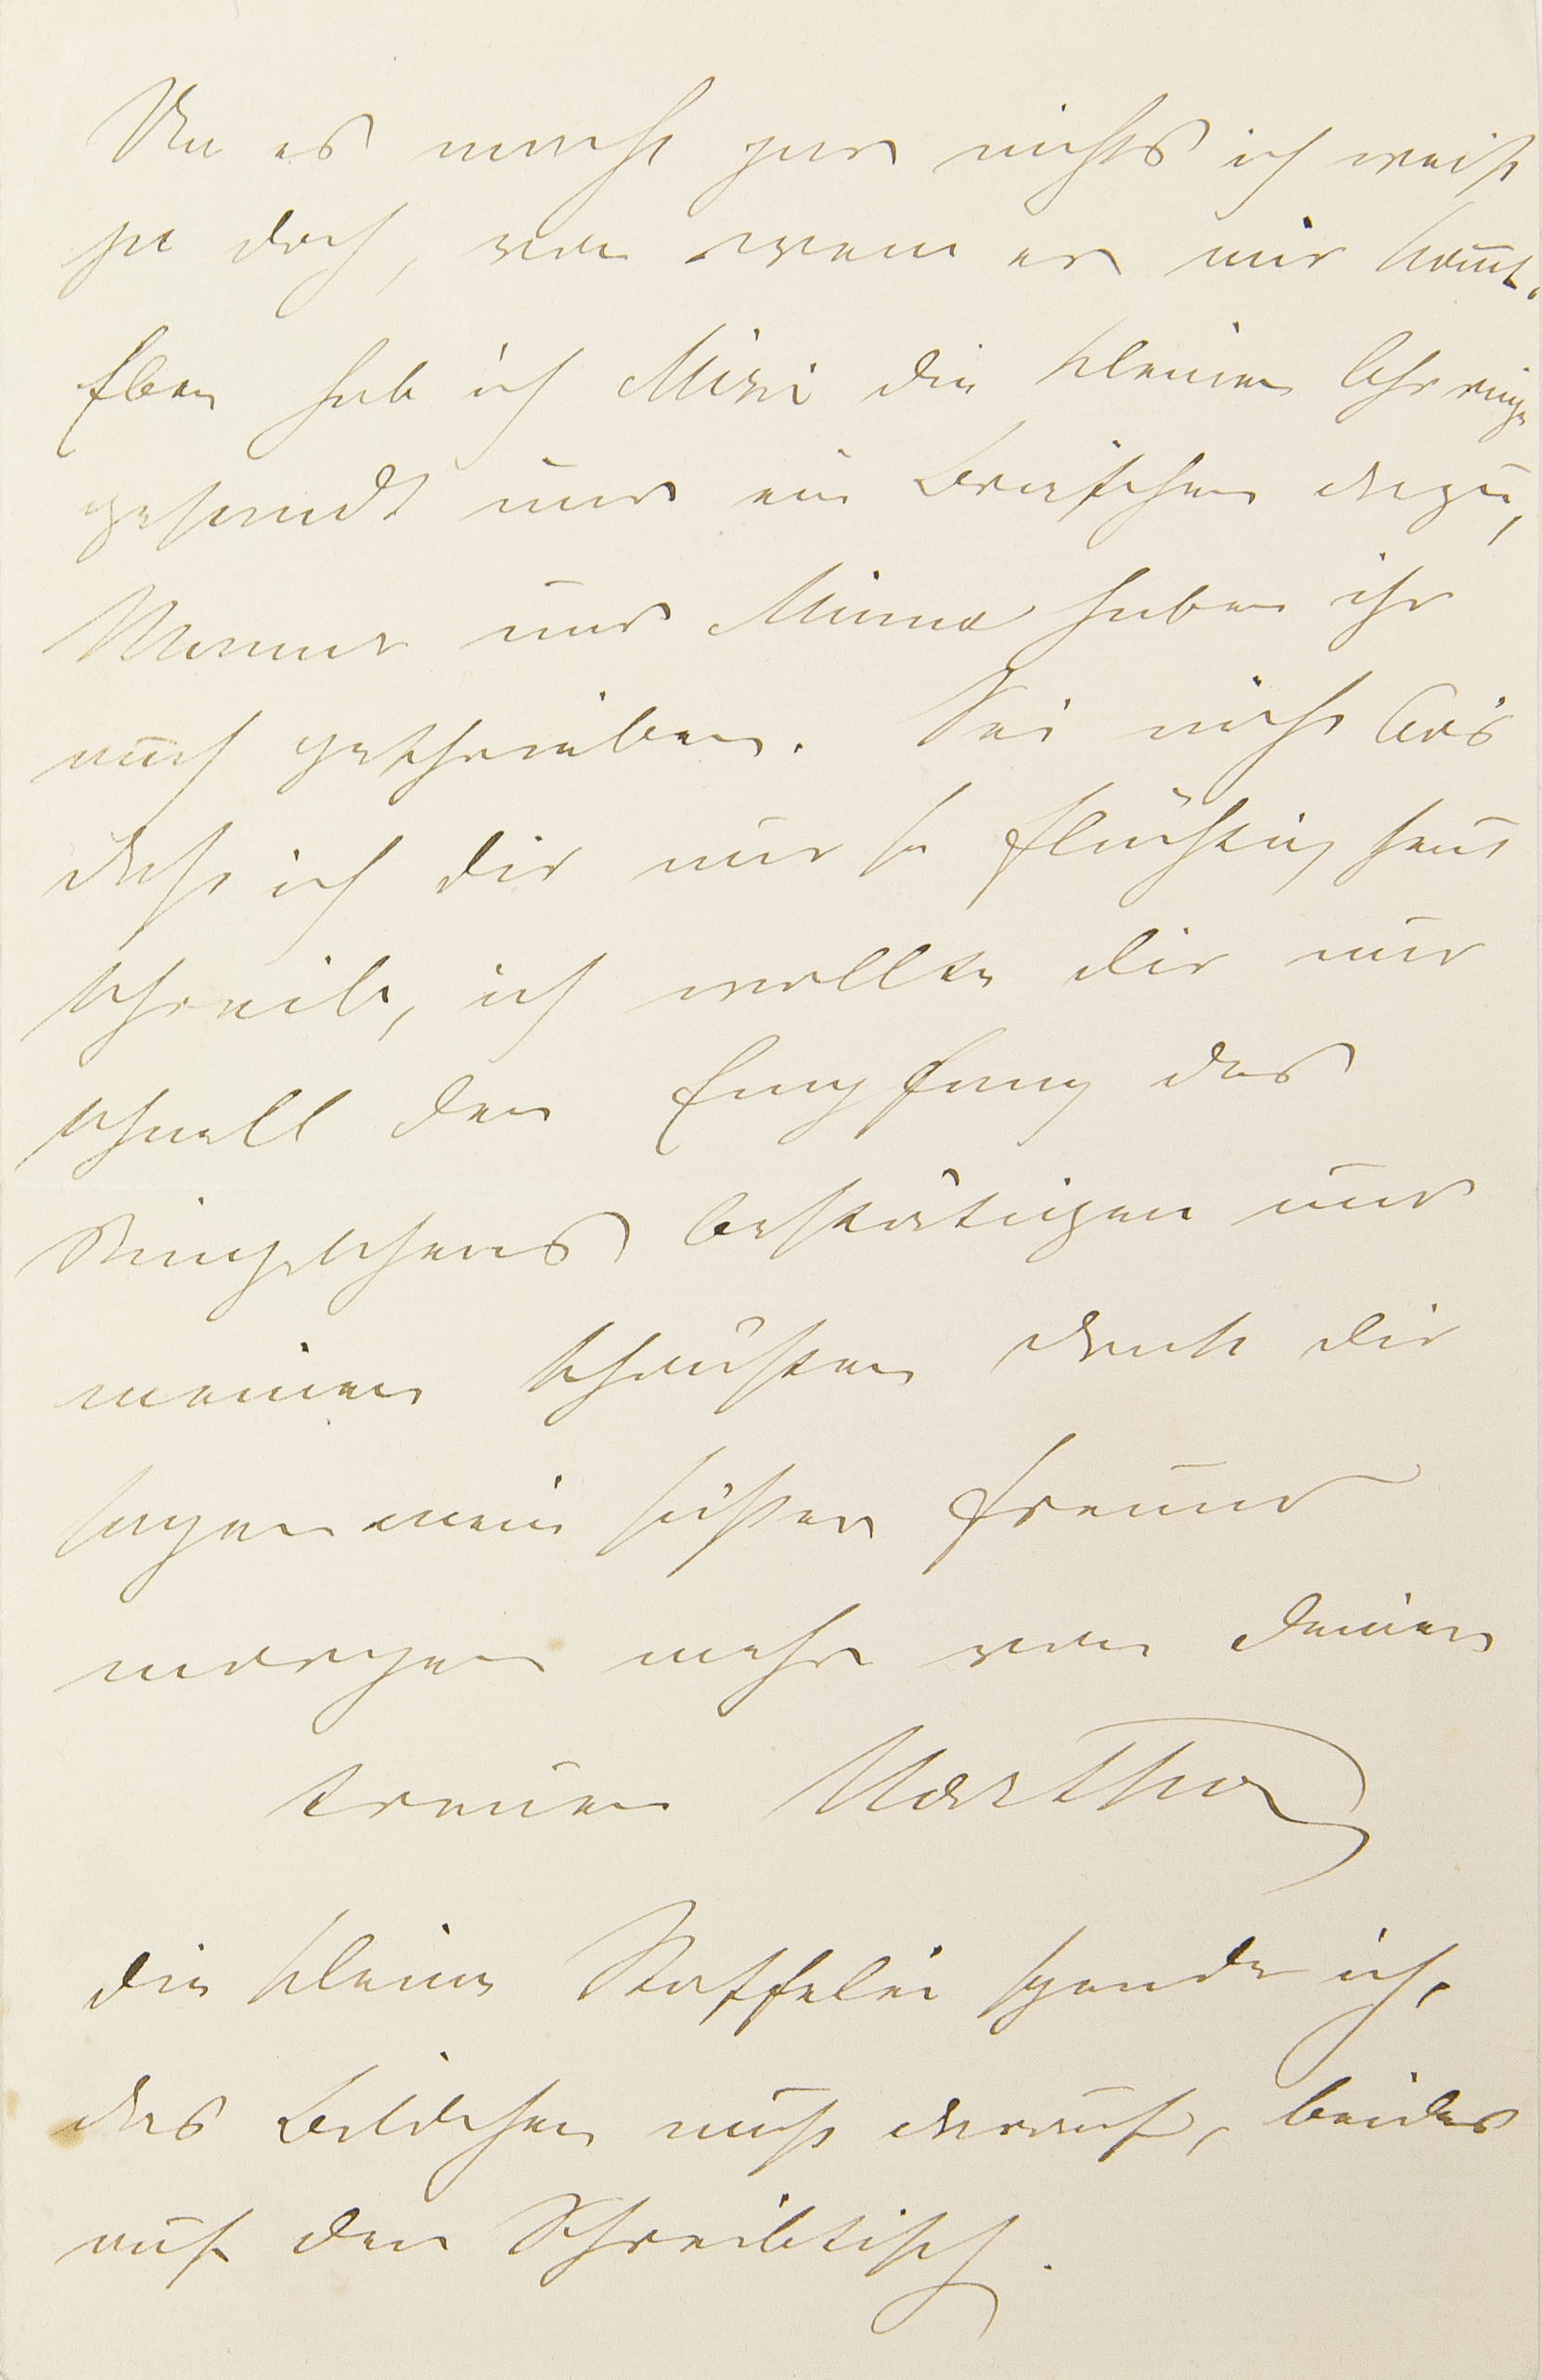 Na es macht gar nichts ich weiß
ja doch, von wem er mir kom̄t.
Eben hab ich Mizi die kleinen Ohrringe
gesandt und ein Briefchen dazu,
Mama und Minna haben ihr
auch geschrieben. Sei nicht bös
daß ich Dir nur so flüchtig heut
schreib, ich wollte Dir nur
schnell den Empfang des
Ringelchens bestätigen und
meinen schönsten Dank Dir
sagen mein süßer Freund
morgen mehr von Deiner
treuen Martha
Die kleine Staffelei spende ich,
das Bildchen muß darauf, beides
auf den Schreibtisch.